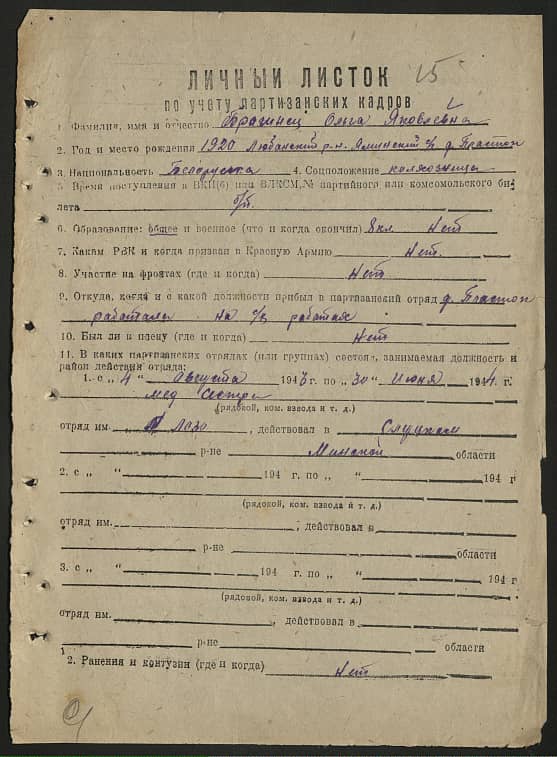 15
ЛИЧНЫЙ ЛИСТОК
по учету партизанских кадров
1. Фамилия, имя и отчество Ольга Яковлевна
2. Год и место рождения 1920 Любанский р-н. с/с д. Пласток
3. Национальность Белоруска 4. Соцположение колхозница
5. Время поступления в ВКП(б) или ВЛКСМ, № партийного или комсомольского би-
лета б/п.
6. Образование: общее и военное (что и когда окончил) 8 кл. Нет
7. Каким РВК и когда призван в Красную Армию Нет.
8. Участие на фронтах (где и когда) Нет
9. Откуда, когда и с какой должности прибыл в партизанский отряд д. Пласток
работала на работах
10. Был ли в плену (где и когда) Нет
11. В каких партизанских отрядах (или группах) состоял, занимаемая должность и
район действия отряда:
1. с „ 4 “ Августа 1943 г. по „ 30 “ Июня 1944 г.
мед сестра
(рядовой, ком. взвода и т. д.)
отряд им. Лазо, действовал в Слуцком
р-не Минской области
2. с „ “ 194 г. по „ “ 194 г
(рядовой, ком. взвода и т. д.)
отряд им. , действовал в
р-не области
3. с „ “ 194 г. по „ “ 194 г.
(рядовой, ком. взвода и т. д.)
отряд им. , действовал в
р-не области
2. Ранения и контузии (где и когда) Нет